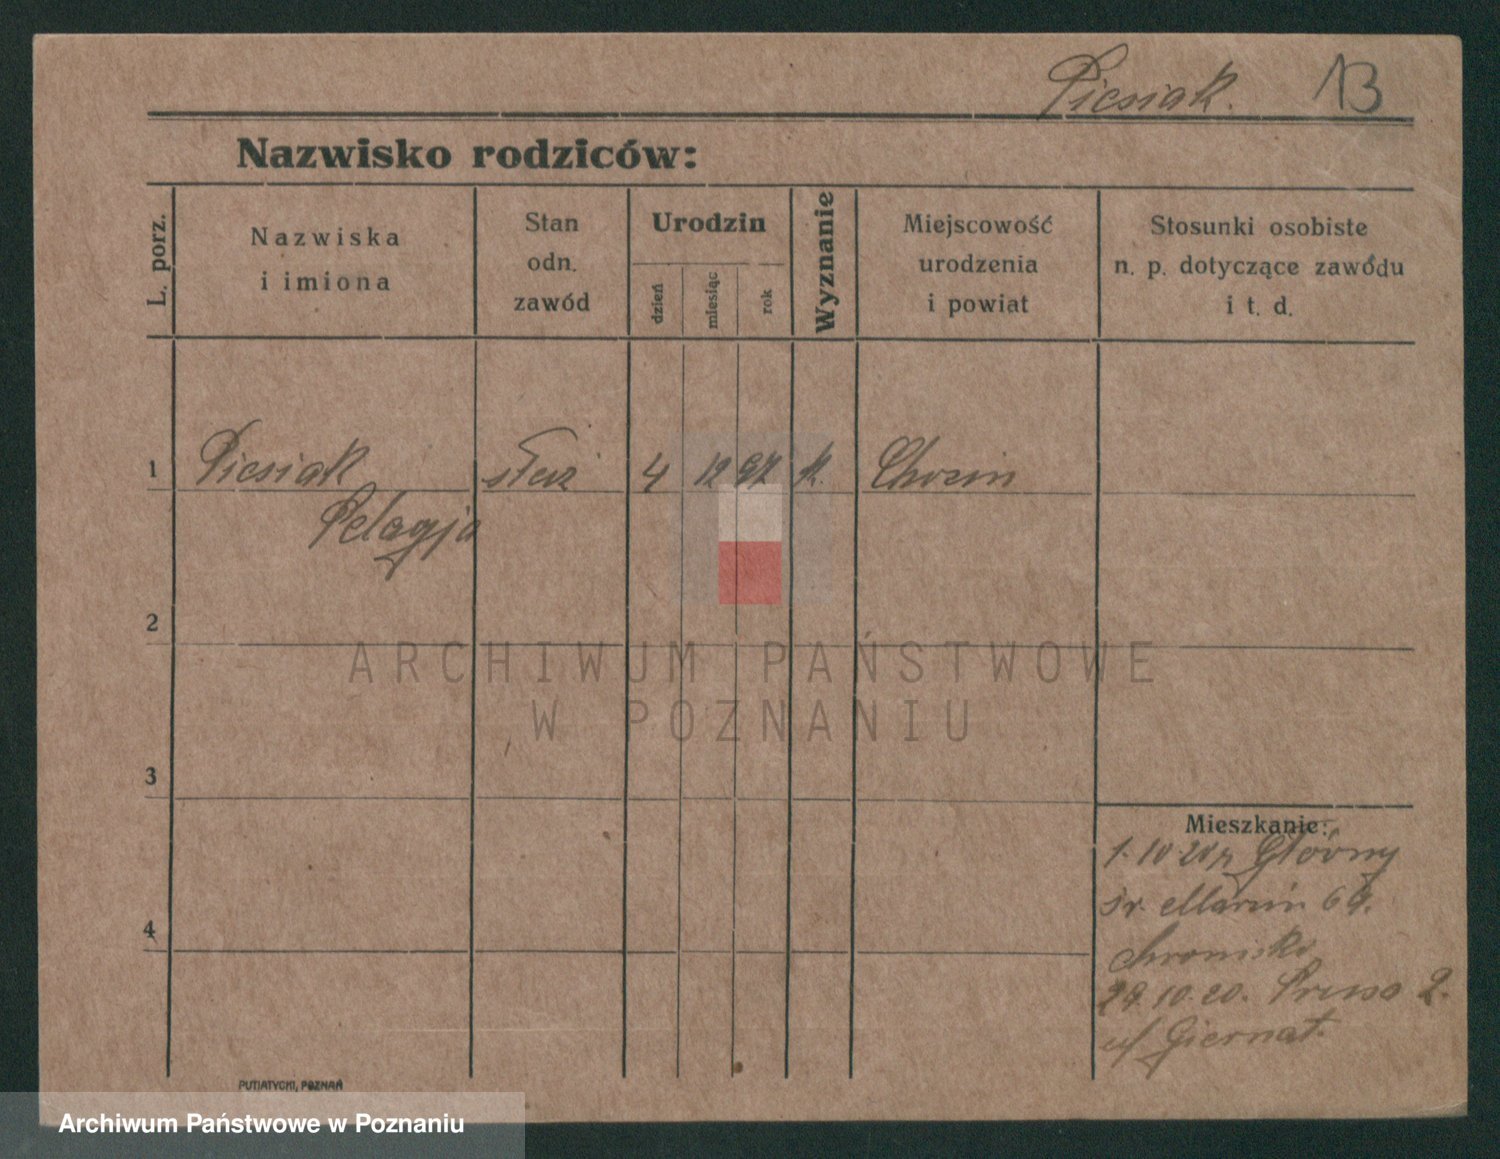 Piesiak. 13
Nazwisko rodziców:
L. porz.
Nazwiska
i imiona
Stan
odn.
zawód
Urodzin
dzień
miesiąc
rok
Wyznanie
Miejscowość
urodzenia
i powiat
Stosunki osobiste
n. p. dotyczące zawódu
i t. d.
1 Piesiak służ 4 12 97 k.
Pelagja
2
ARCHIWUM PAŃSTWOWE
W POZNANIU
3
Mieszkanie:
1.10.20 Główny
św. Marcin 69.
4
29.10.20. Prusa 2.
PUTIATYCKI, POZNAŃ
Archiwum Państwowe w Poznaniu